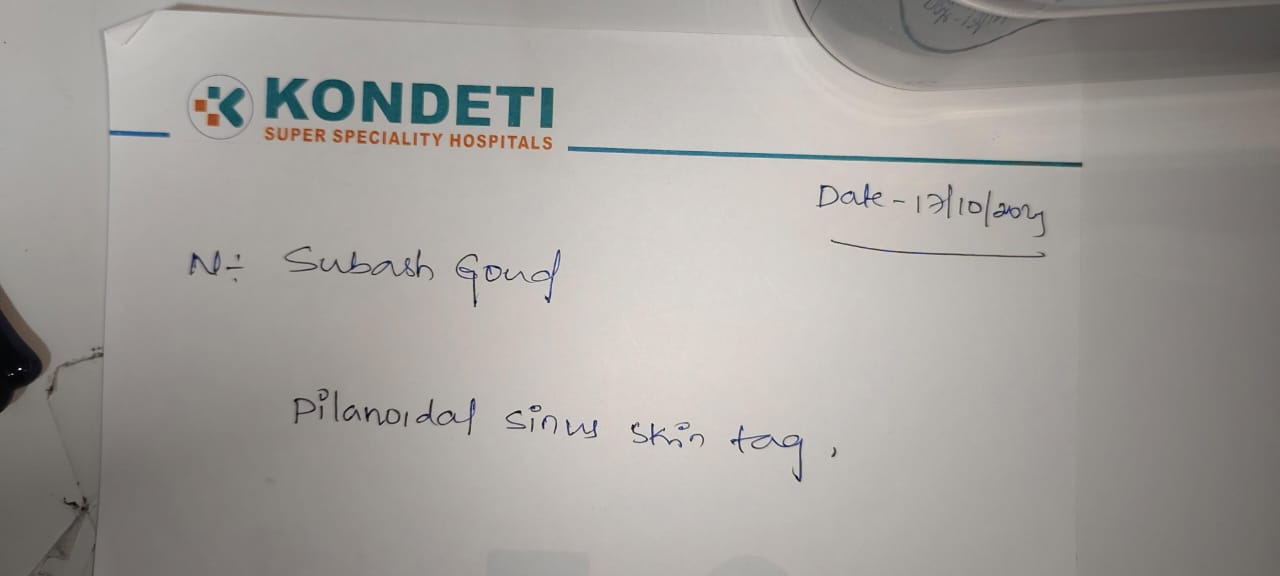 KONDETI
SUPER SPECIALITY HOSPITALS
Date - 17/10/202
N:- Subash Goud
Pilanoidal sinus skin tag,